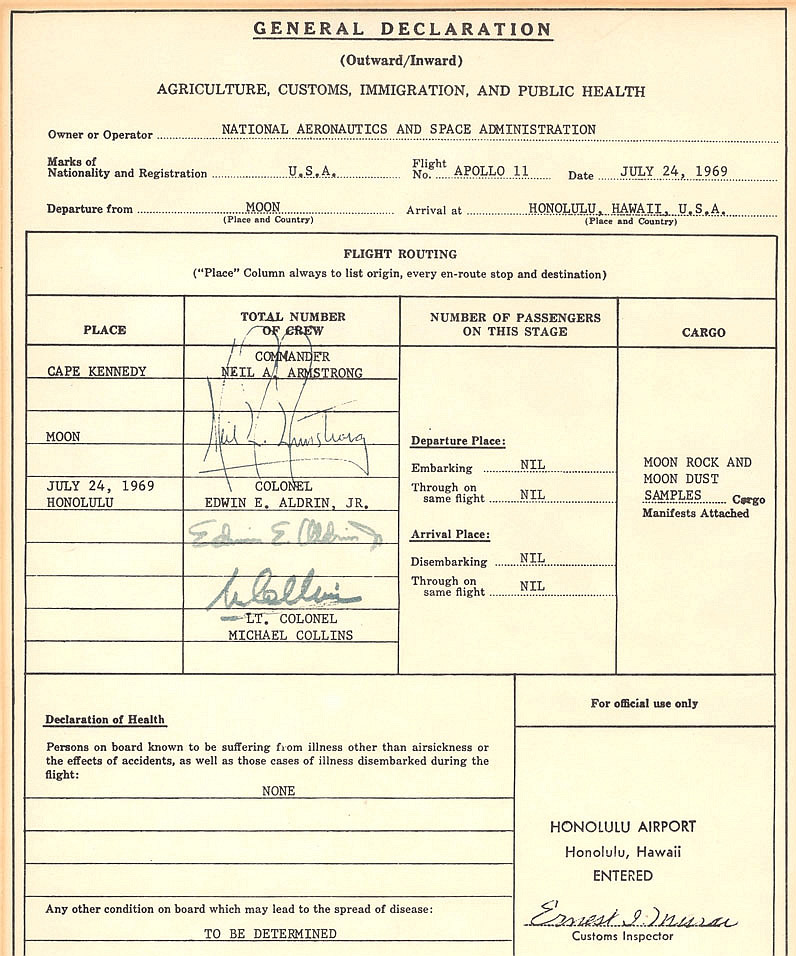 GENERAL DECLARATION
(Outward/Inward)
AGRICULTURE, CUSTOMS, IMMIGRATION, AND PUBLIC HEALTH
Owner or Operator NATIONAL AERONAUTICS AND SPACE ADMINISTRATION
Marks of
Nationality and Registration U.S.A. Flight No. APOLLO 11 Date JULY 24, 1969
Departure from MOON Arrival at HONOLULU, HAWAII, U.S.A.
(Place and Country) (Place and Country)
FLIGHT ROUTING
("Place" Column always to list origin, every en-route stop and destination)
PLACE
TOTAL NUMBER
OF CREW
NUMBER OF PASSENGERS
ON THIS STAGE
CARGO
CAPE KENNEDY
MOON
JULY 24, 1969
HONOLULU
COMMANDER
NEIL A. ARMSTRONG
Neil A. Armstrong
COLONEL
EDWIN E. ALDRIN, JR.
Edwin E. Aldrin Jr
M Collins
LT. COLONEL
MICHAEL COLLINS
Departure Place:
Embarking NIL
Through on
same flight NIL
Arrival Place:
Disembarking NIL
Through on
same flight NIL
MOON ROCK AND
MOON DUST
SAMPLES Cargo
Manifests Attached
Declaration of Health
Persons on board known to be suffering from illness other than airsickness or
the effects of accidents, as well as those cases of illness disembarked during the
flight:
NONE
Any other condition on board which may lead to the spread of disease:
TO BE DETERMINED
For official use only
HONOLULU AIRPORT
Honolulu, Hawaii
ENTERED
Ernest I. Murai
Customs Inspector